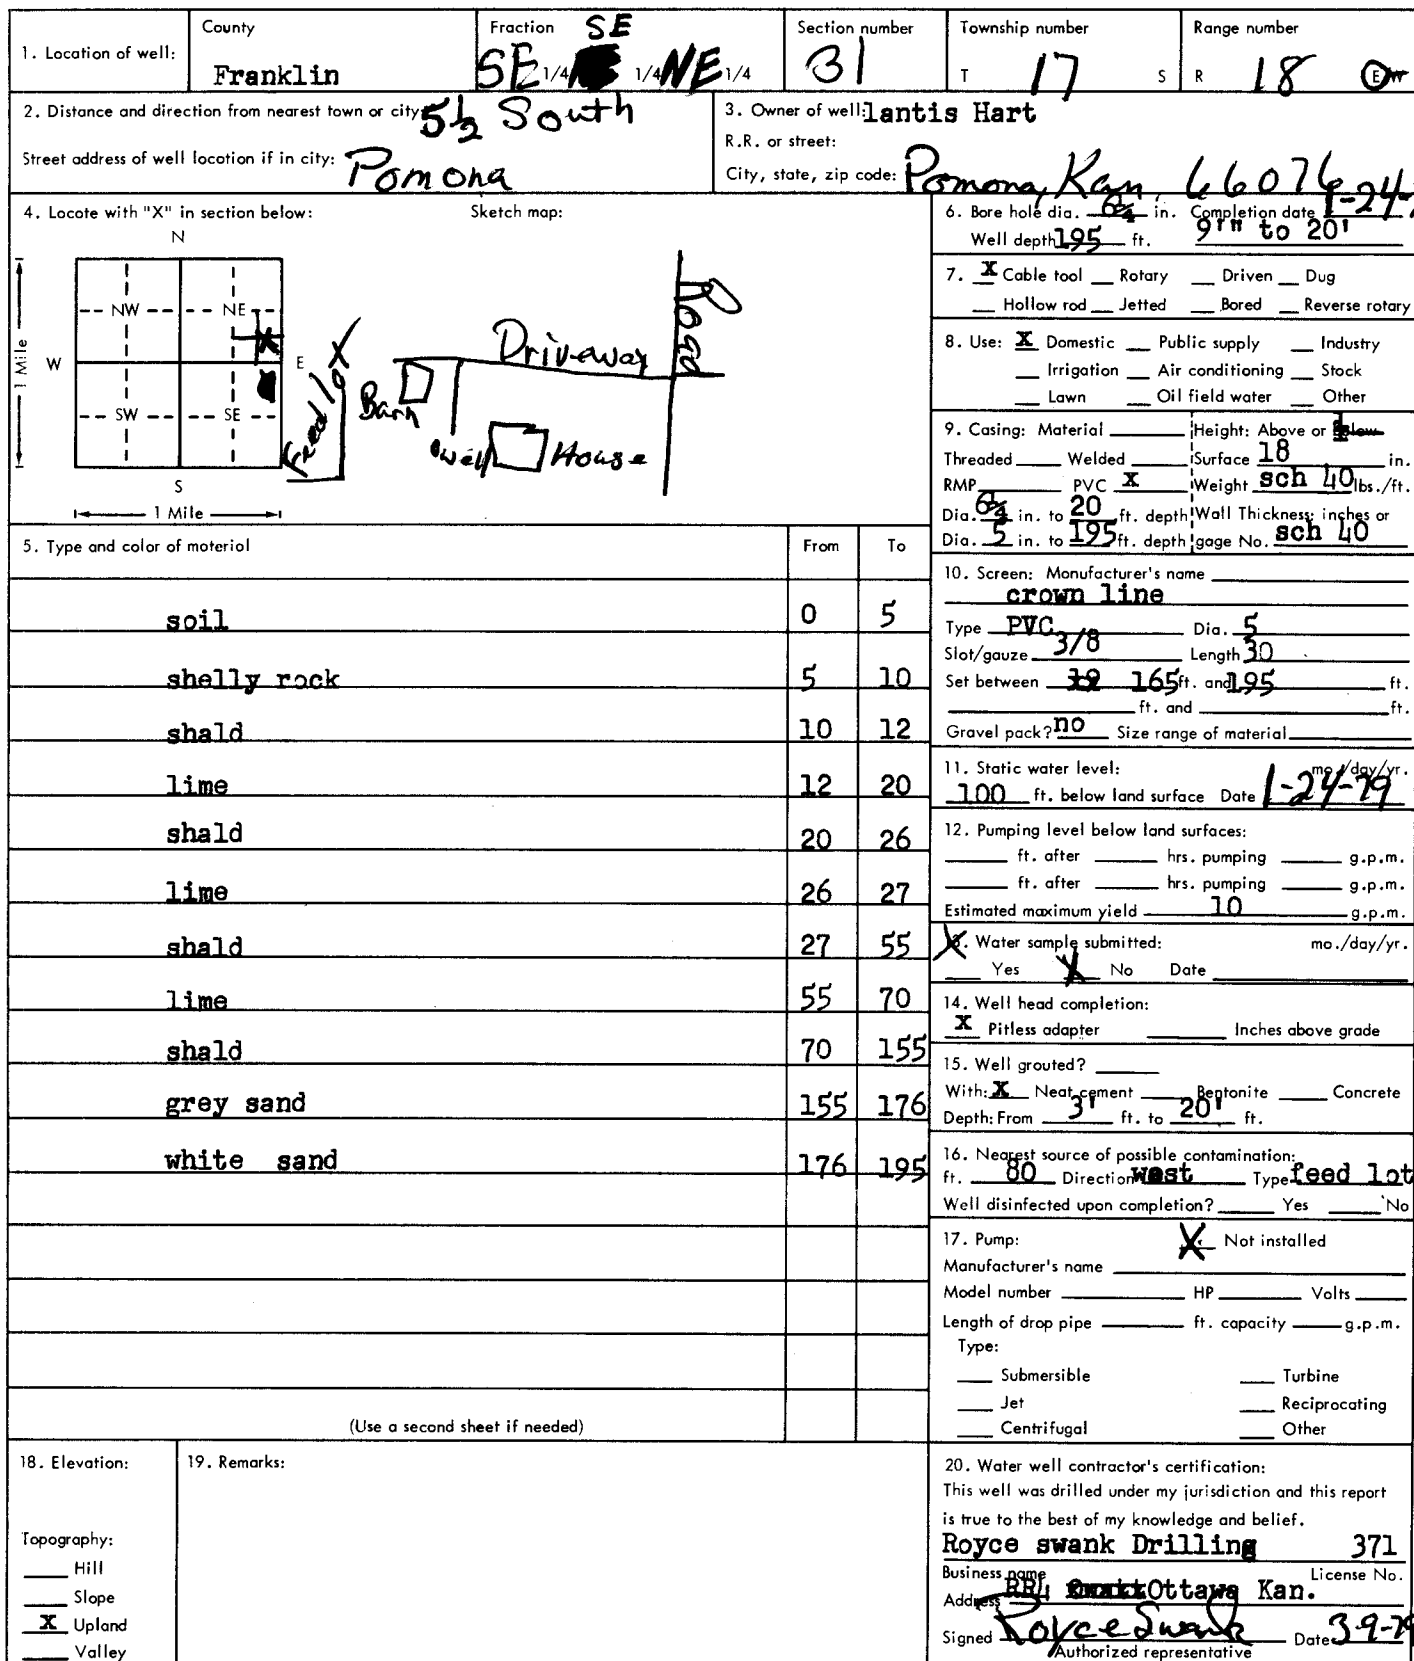 1. Location of well:
County
Franklin
Fraction SE
SE 1/4 1/4 NE 1/4
Section number
31
Township number
T 17 S
Range number
R 18 E W
2. Distance and direction from nearest town or city 5½ South
Street address of well location if in city: Pomona
3. Owner of well: lantis Hart
R.R. or street:
City, state, zip code: Pomona, Kan, 66076
4. Locate with "X" in section below:
Sketch map:
N
NW NE
W E
SW SE
S
1 Mile
1 Mile
X
Feed lot
Barn
Driveway
Road
well
House
5. Type and color of material From To
soil 0 5
shelly rock 5 10
shald 10 12
lime 12 20
shald 20 26
lime 26 27
shald 27 55
lime 55 70
shald 70 155
grey sand 155 176
white sand 176 195
(Use a second sheet if needed)
6. Bore hole dia. 6¼ in. Completion date 1-24-
Well depth 195 ft. 9"" to 20'
7. X Cable tool Rotary Driven Dug
Hollow rod Jetted Bored Reverse rotary
8. Use: X Domestic Public supply Industry
Irrigation Air conditioning Stock
Lawn Oil field water Other
9. Casing: Material Height: Above or below
Threaded Welded Surface 18 in.
RMP PVC X Weight sch 40 lbs./ft.
Dia. 6¼ in. to 20 ft. depth Wall Thickness: inches or
Dia. 5 in. to 195 ft. depth gage No. sch 40
10. Screen: Manufacturer's name
crown line
Type PVC Dia. 5
Slot/gauze 3/8 Length 30
Set between 165 ft. and 195 ft.
ft. and ft.
Gravel pack? no Size range of material
11. Static water level: mo./day/yr.
100 ft. below land surface Date 1-24-79
12. Pumping level below land surfaces:
ft. after hrs. pumping g.p.m.
ft. after hrs. pumping g.p.m.
Estimated maximum yield 10 g.p.m.
X. Water sample submitted: mo./day/yr.
Yes X No Date
14. Well head completion:
X Pitless adapter Inches above grade
15. Well grouted?
With: X Neat cement Bentonite Concrete
Depth: From 3' ft. to 20' ft.
16. Nearest source of possible contamination:
ft. 80 Direction west Type feed lot
Well disinfected upon completion? Yes No
17. Pump: X Not installed
Manufacturer's name
Model number HP Volts
Length of drop pipe ft. capacity g.p.m.
Type:
Submersible Turbine
Jet Reciprocating
Centrifugal Other
18. Elevation:
Topography:
Hill
Slope
X Upland
Valley
19. Remarks:
20. Water well contractor's certification:
This well was drilled under my jurisdiction and this report
is true to the best of my knowledge and belief.
Royce swank Drilling 371
Business name License No.
Address RR4 Ottawa Kan.
Signed Royce Swank Date 3-9-79
Authorized representative